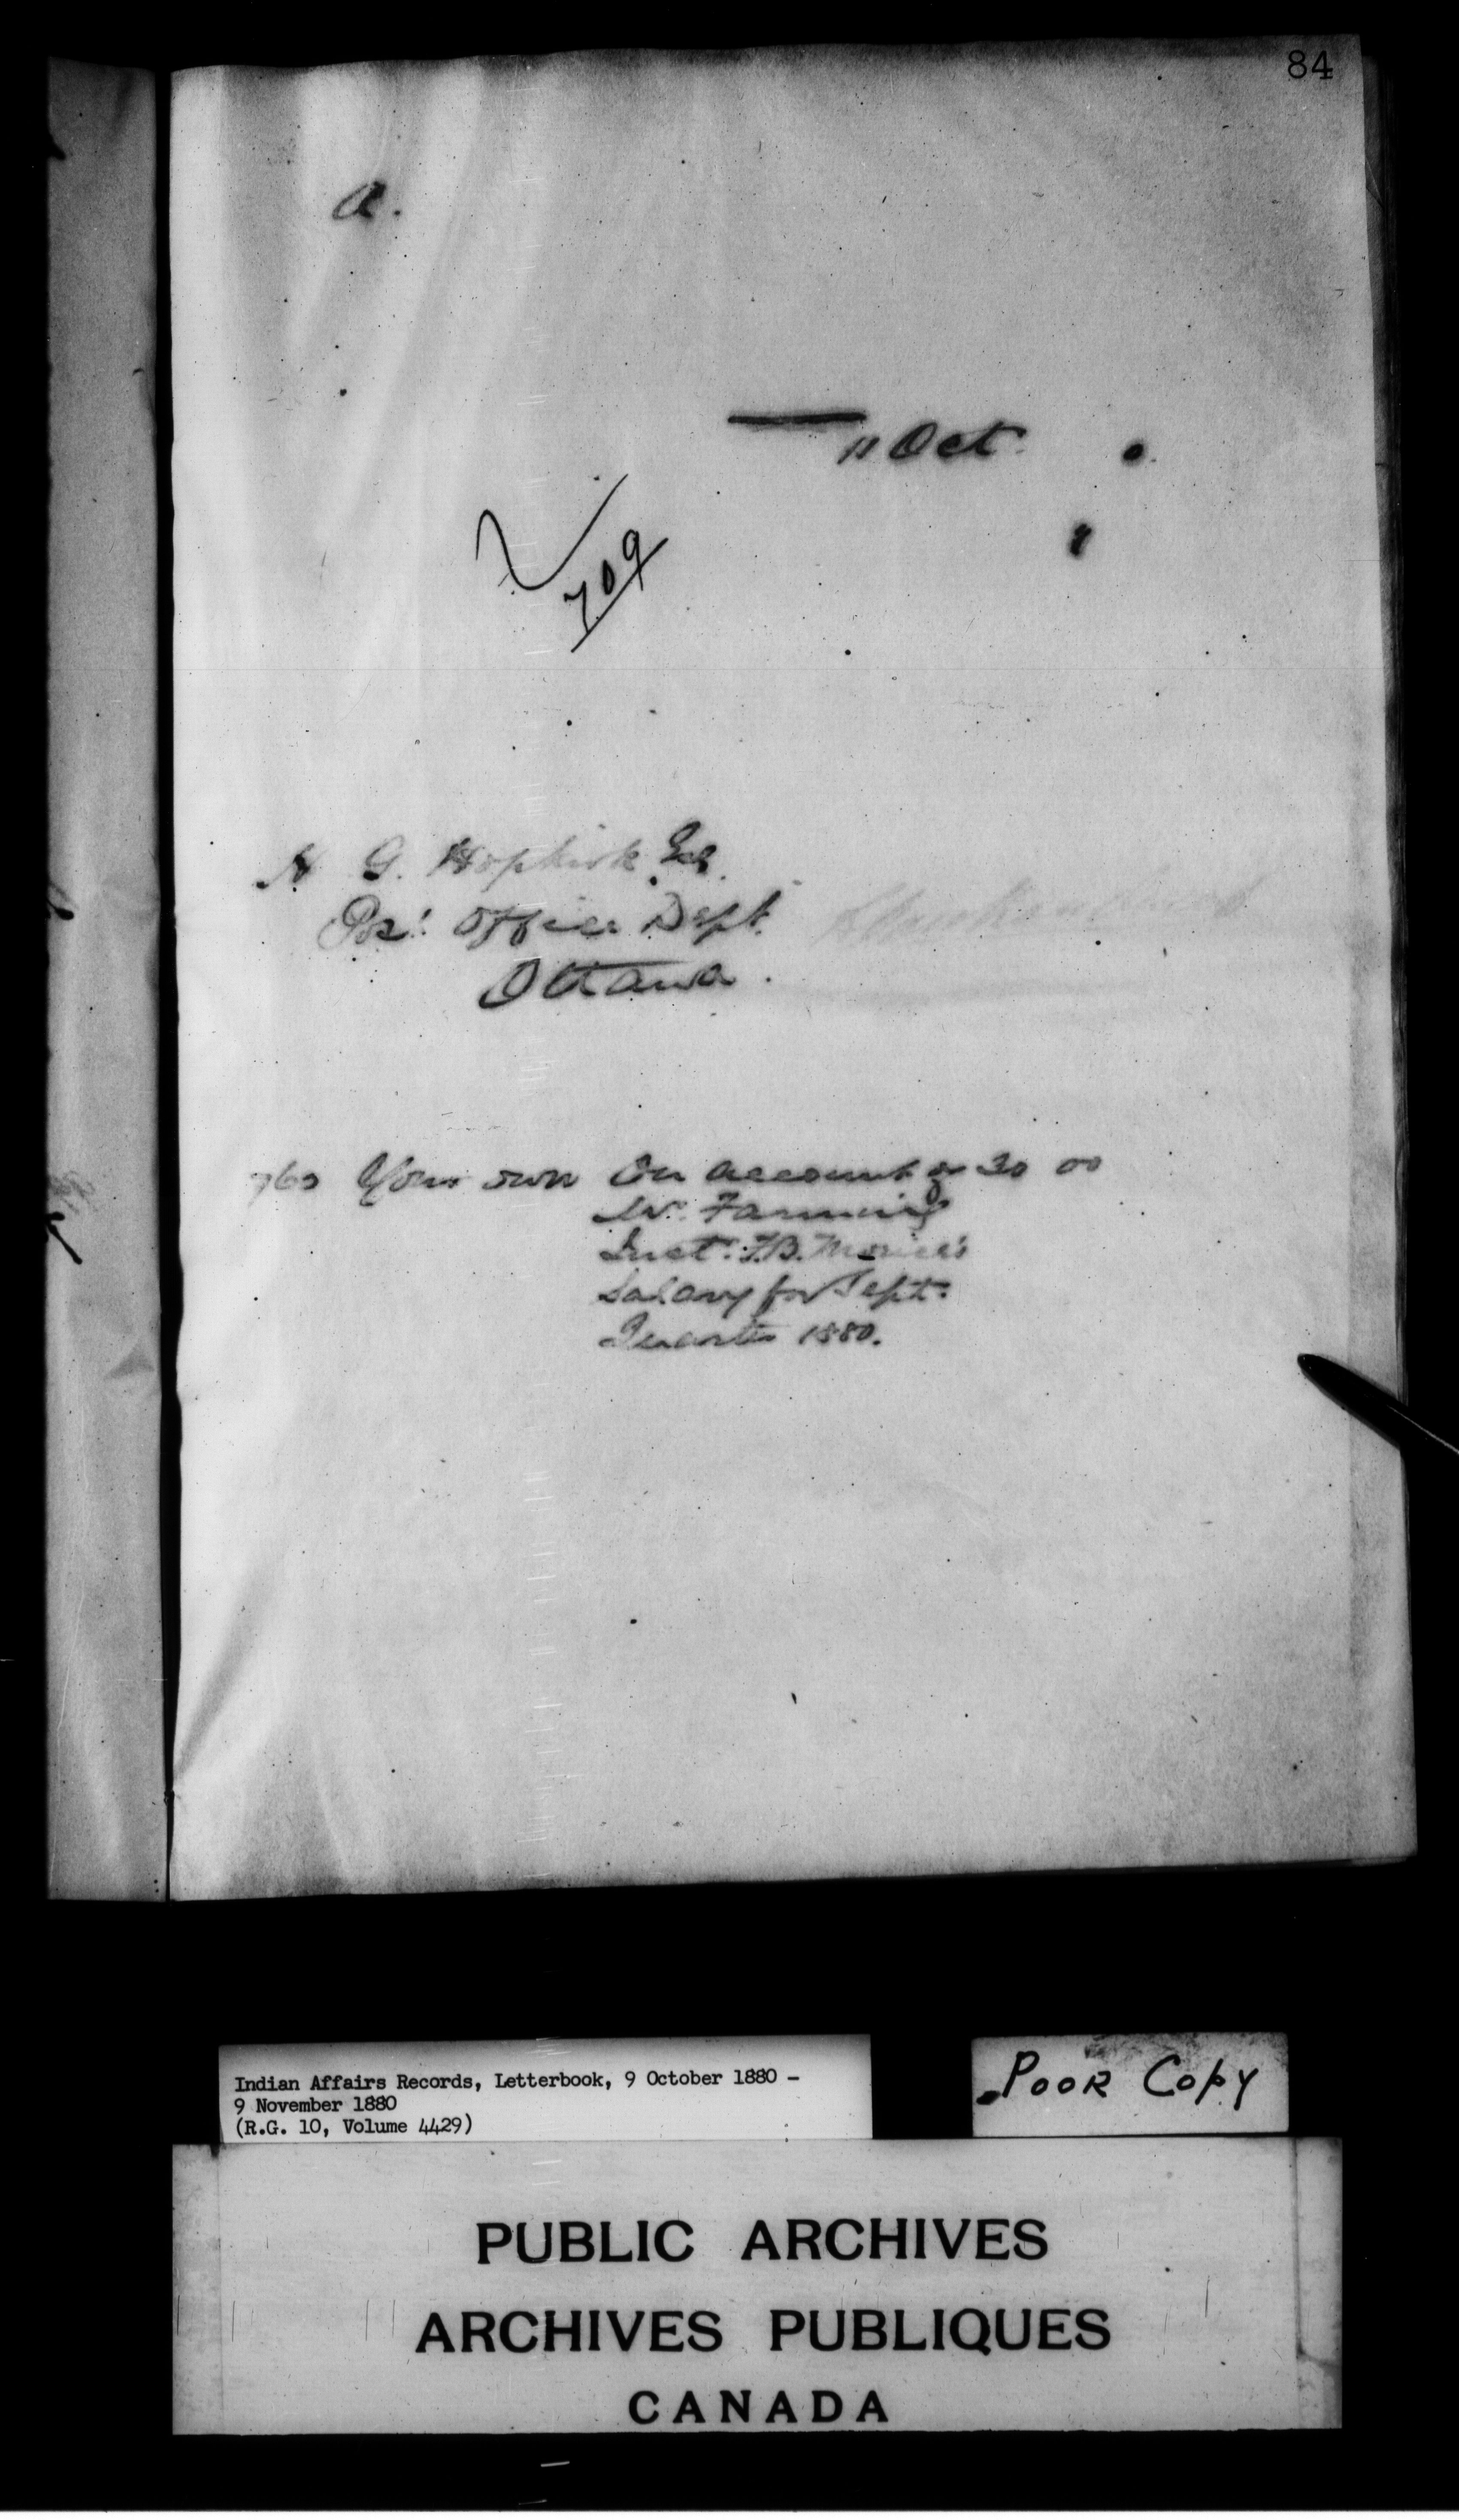 84
a.
11 Oct.
709
H G. Hopkirk Esq.
Pos! Office Dept.
Ottawa.
760 Your own On account of 30 00
Mr. Farming
Inst. T.B.
Salary for Sept.
Quarter 1880.
Indian Affairs Records, Letterbook, 9 October 1880 -
9 November 1880
(R.G. 10, Volume 4429)
POOR COPY
PUBLIC ARCHIVES
ARCHIVES PUBLIQUES
CANADA